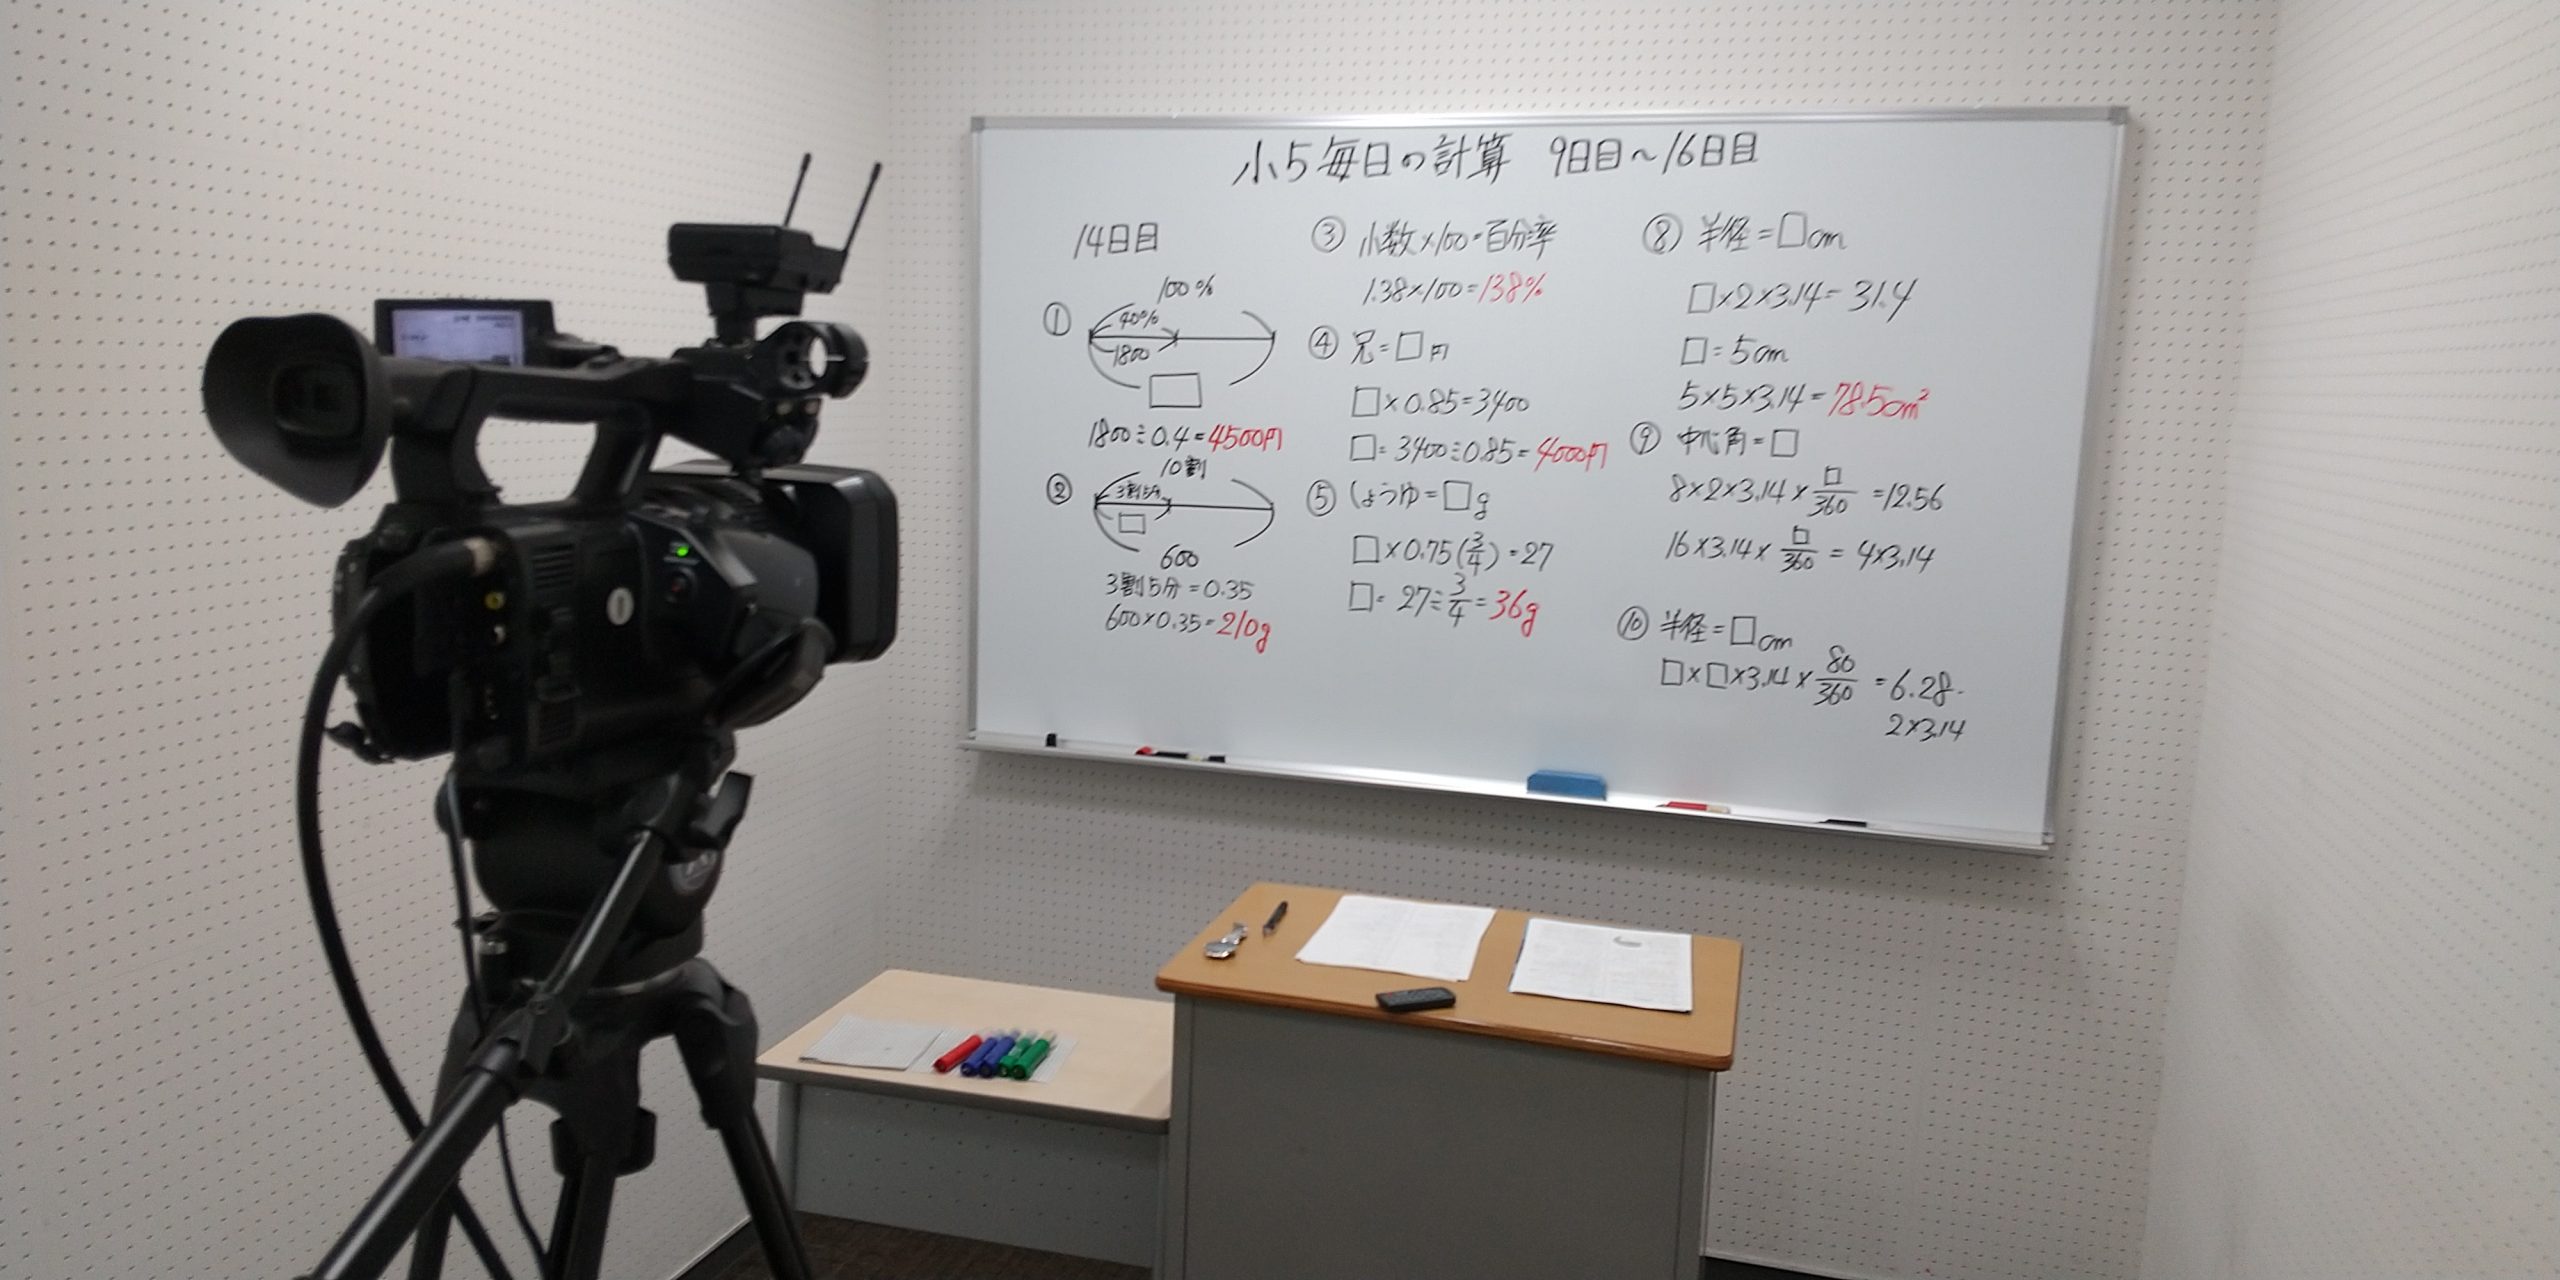 小5毎日の計算 9日目～16日目
14日目
①
100%
40%
1800
□
1800÷0.4=4500円
②
10割
3割5分
□
600
3割5分=0.35
600×0.35=210g
③ 小数×100=百分率
1.38×100=138%
④ 兄=□円
□×0.85=3400
□=3400÷0.85=4000円
⑤ しょうゆ=□g
□×0.75(3/4)=27
□=27÷3/4=36g
⑧ 半径=□cm
□×2×3.14=31.4
□=5cm
5×5×3.14=78.5cm²
⑨ 中心角=□
8×2×3.14×□/360=12.56
16×3.14×□/360=4×3.14
⑩ 半径=□cm
□×□×3.14×80/360=6.28
2×3.14